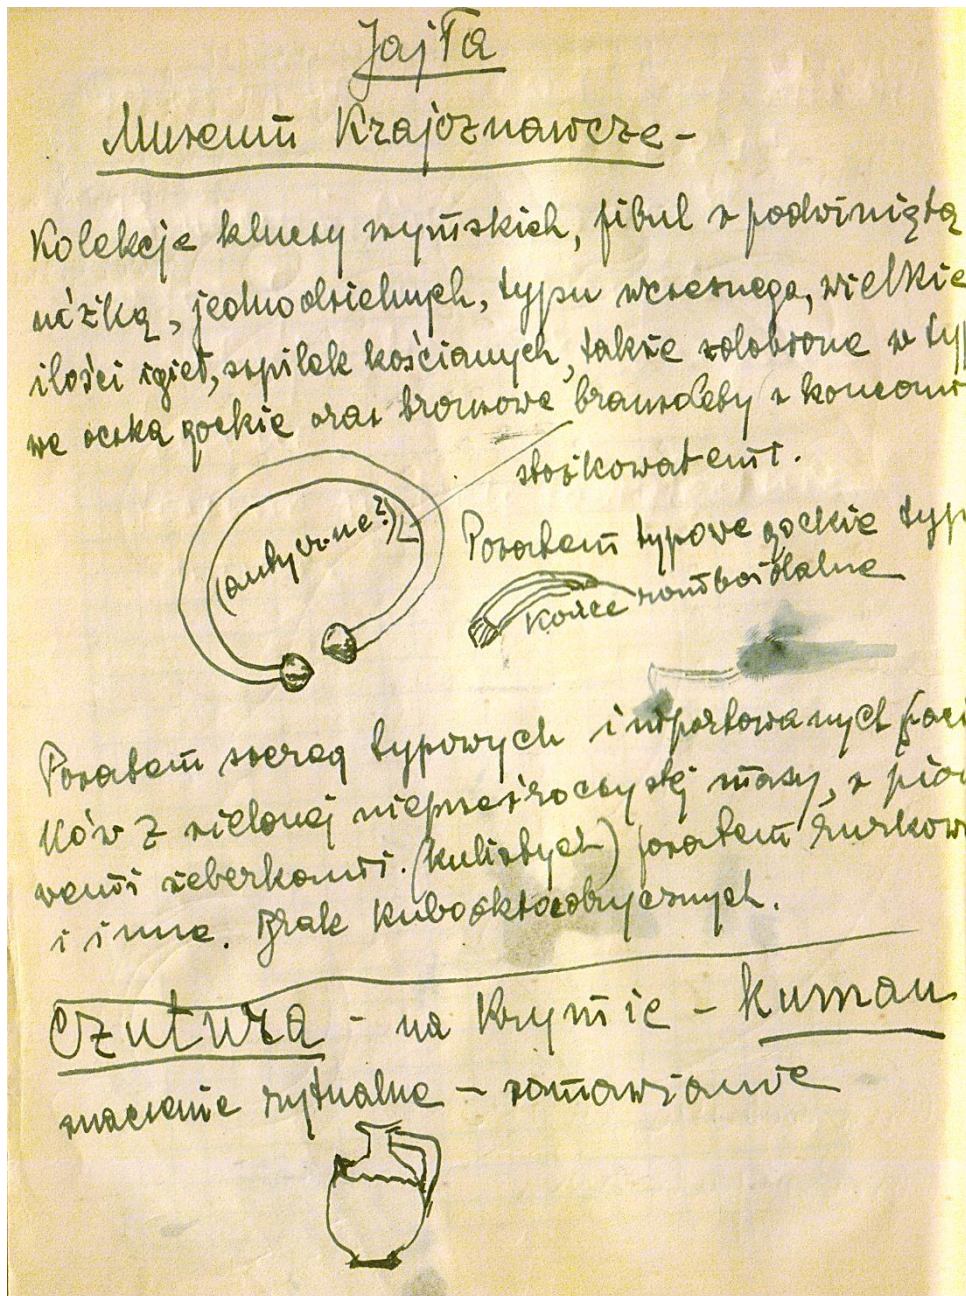 Jajła
Muzeum Krajoznawcze -
Kolekcje kluczy rzymskich, fibul z podwiniętą
nóżką, jednodzielnych, typu wczesnego, wielkie
ilości igieł, szpilek kościanych, także zdobione w typ
we oczka gockie oraz bronzowe bransolety z koncami
stożkowatemi.
(antyczne?)
Pozatem typowe gockie typ
końce romboidalne
Pozatem szereg typowych importowanych paci
ków z zielonej nieprzeźroczystej masy, z pio
wemi żeberkami. (kulistych) pozatem rurkow
i inne. Brak kubooktoedrycznych.
Czutura - na Krymie - kuman
znaczenie rytualne - zamawianie